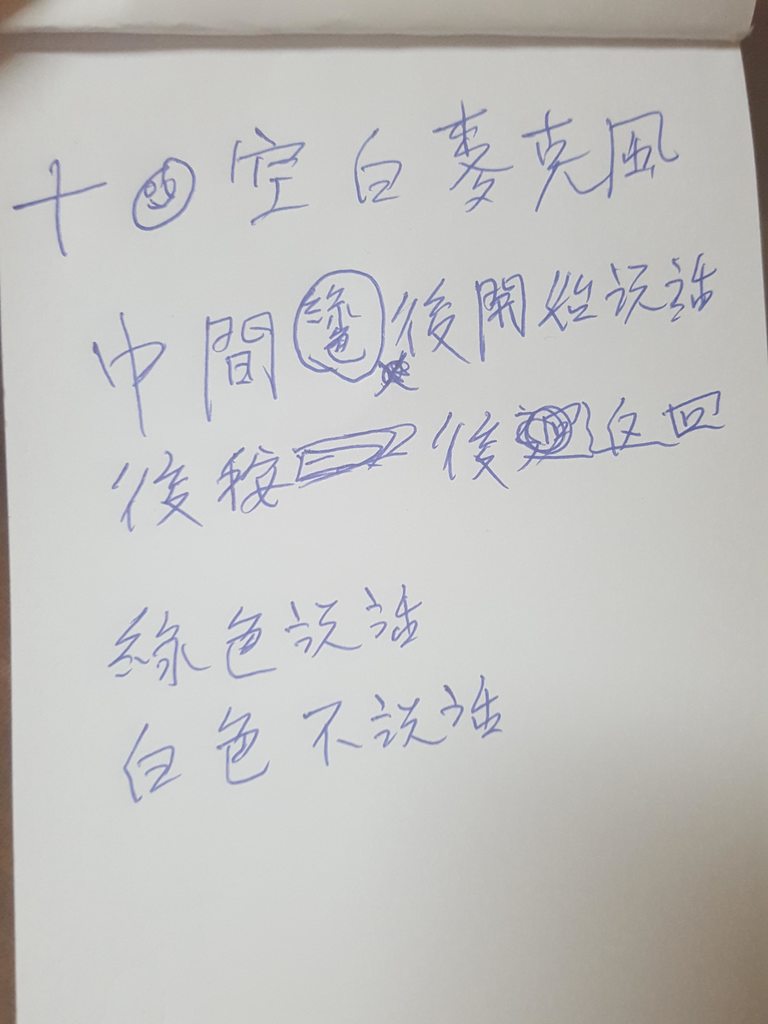 十 空白麥克風
中間綠色後開始说話
後按 後 返回
綠色说話
白色不说話